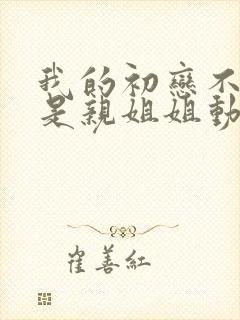 我的初戀不
是親姐姐動
崔善紅